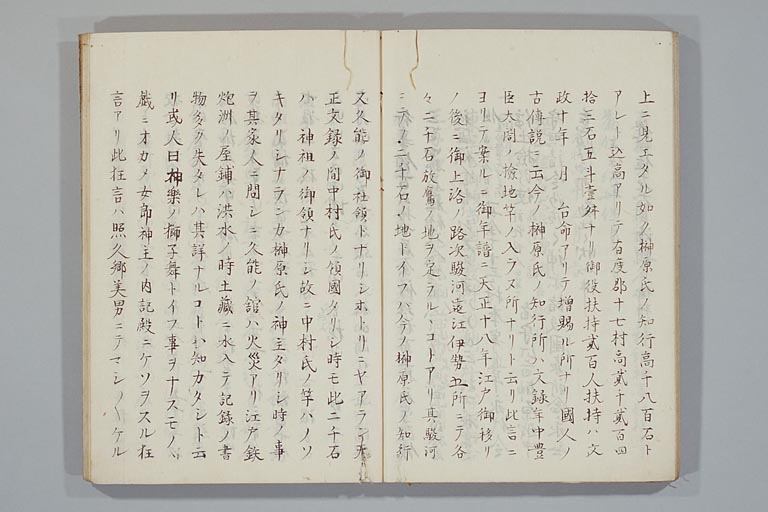 上ニ見エタル如ノ榊原氏ノ知行高千八百石ト
アレト込高アリテ有度郡十七村高貳千貳百四
拾三石五斗壹舛ナリ御役扶持貳百人扶持ハ文
政十年 月 台命アリテ増賜ル所ナリ國人ノ
古傳説ニ云今ノ榊原氏ノ知行所ハ文録年中豊
臣大閤ノ撿地竿ノ入ラヌ所ナリト云リ此言ニ
ヨリテ案ルニ御年譜ニ天正十八年江戸御移リ
ノ後ニ御上洛ノ路次駿河遠江伊勢五所ニテ各
々二千石放奮ノ地ヲ定ラル丶コトアリ其駿河
ニテノ二千石ノ地トイフハ今ノ榊原氏ノ知行
又久能ノ御社領トナリシホトリニヤアラン天
正文録ノ間中村氏ノ領國タリシ時モ此二千石
ハ 神祖ノ御領ナリシ故ニ中村氏ノ竿ハノソ
キタリシナランカ榊原氏ノ神主タリシ時ノ事
ヲ其家人ニ問シニ久能ノ舘ハ火災アリ江戸鉄
炮洲ノ屋鋪ハ洪水ノ時土藏ニ水入テ記録ノ書
物多ク失タレハ其詳ナルコトハ知カタシト云
リ或人曰神樂ノ獅子舞トイフ事ヲナスモノヽ
戯ニオカメ女郎神主ノ内記殿ニケソヲスル狂
言アリ此狂言ハ照久郷美男ニテマシ〱ケル